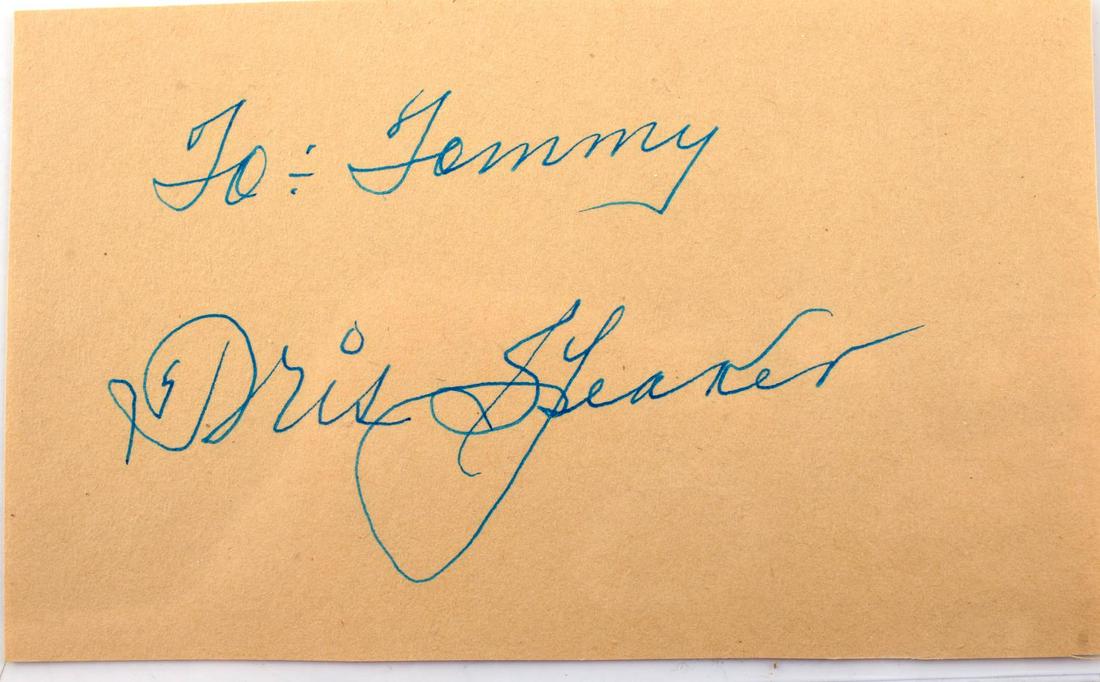 To: Tommy
Tris Speaker